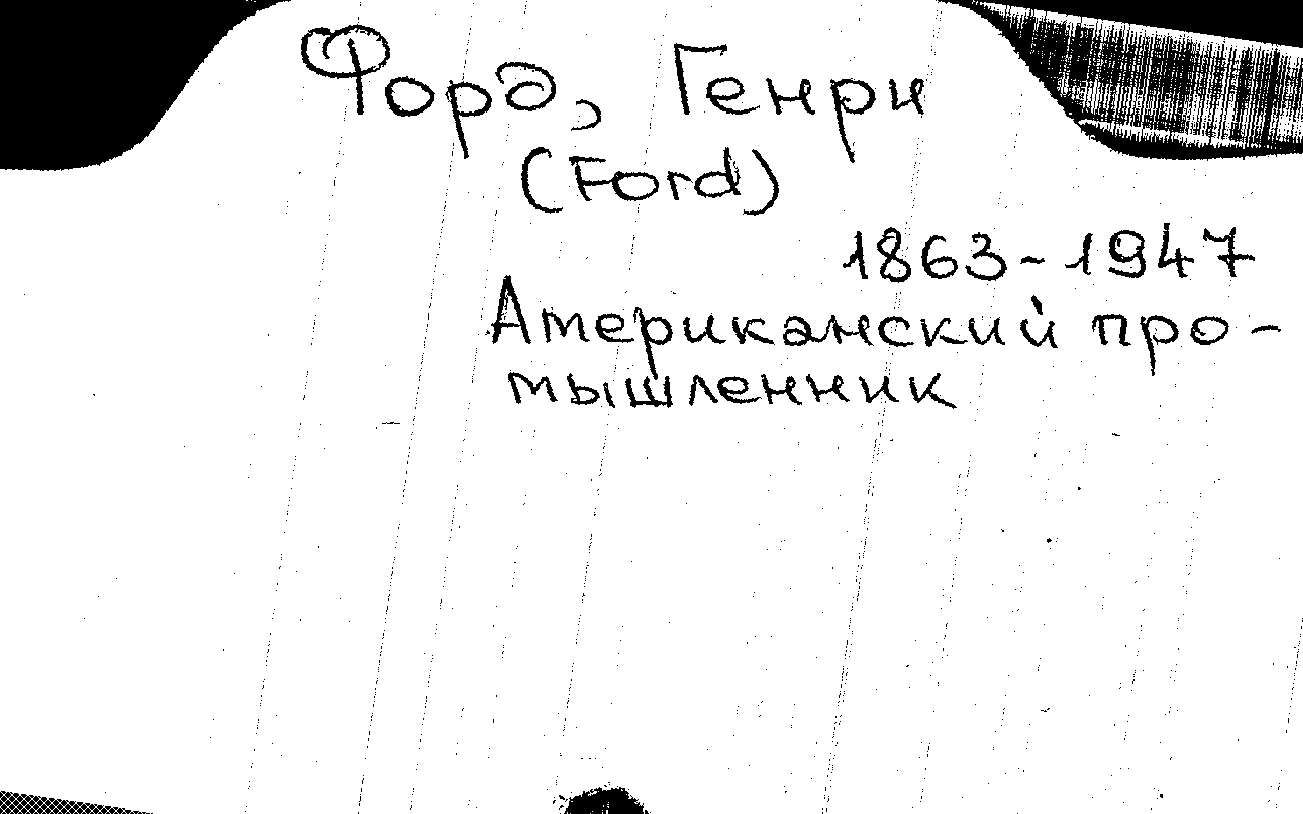 Форд, Генри
(Ford)
1863-1947
Американский про-
мышленник